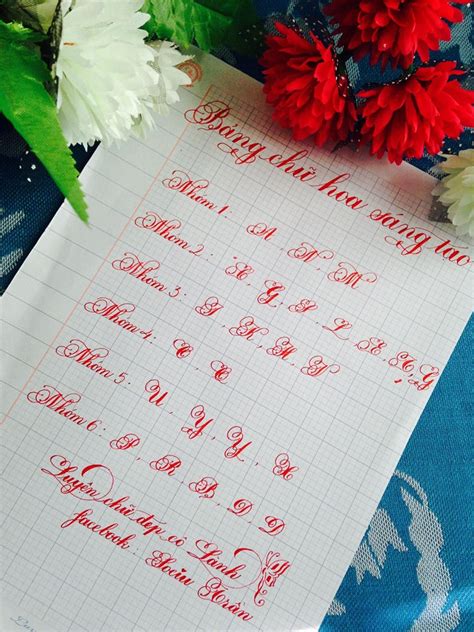 Bảng chữ hoa sáng tạo
Nhóm 1: A, N, M
Nhóm 2: G, S, L, E, G
Nhóm 3: I, K, H, V
Nhóm 4: C, C
Nhóm 5: U, Y, Y, X
Nhóm 6: P, R, B, D, D
Luyện chữ đẹp cô Lành
facebook: Trần